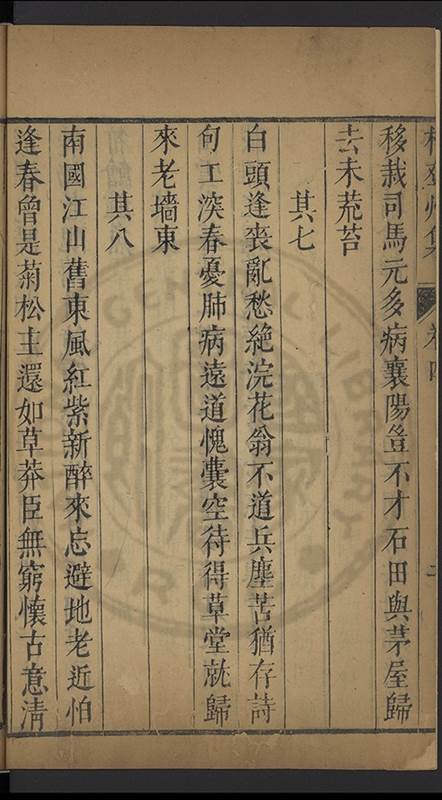 移栽司馬元多病襄陽豈不才石田與茅屋歸
去未荒苔
其七
白頭逢喪亂愁絶浣花翁不道兵塵苦猶存詩
句工深春憂肺病遠道愧囊空待得草堂就歸
來老墻東
其八
南國江山舊東風紅紫新醉來忘避地老近怕
逢春曾是菊松主還如草莽臣無窮懷古意清